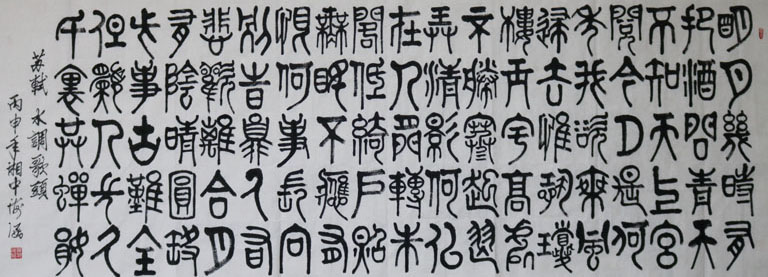 明月幾時有
把酒問青天
不知天上宮
闕今夕是何
年我欲乘風
歸去惟恐瓊
樓玉宇高處
不勝寒起舞
弄清影何似
在人間轉朱
閣低綺戶照
無眠不應有
恨何事長向
別時圓人有
悲歡離合月
有陰晴圓缺
此事古難全
但願人長久
千里共嬋娟
蘇軾 水調歌頭
丙申年湘中